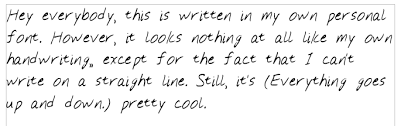 Hey everybody, this is written in my own personal
font. However, it looks nothing at all like my own
handwriting,, except for the fact that I can't
write on a straight line. Still, it's (Everything goes
up and down.) pretty cool.